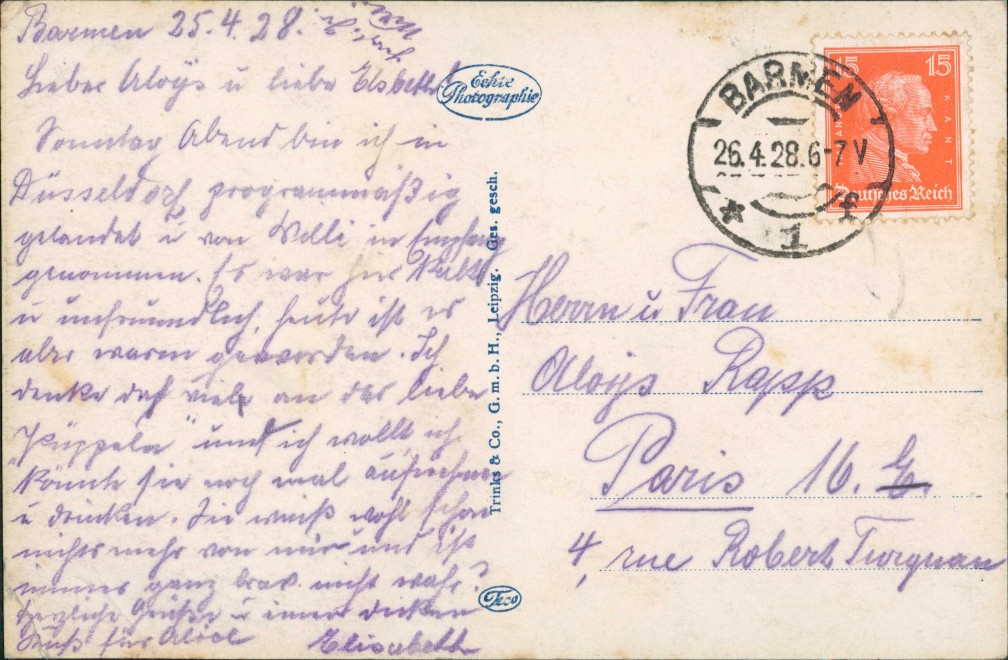 Barmen 25.4.28.
Lieber Aloÿs u liebe Elsbeth!
Sonntag Abend bin ich in
Düsseldorf programmmäßig
gelandet u von Willi in Empfang
genommen. Es war hier kalt
u unfreundlich, heute ist es
aber warm geworden. Ich
denke oft viel an das liebe
„Püppela" und ich wollt ich
könnte sie noch mal aufnehmen
u drücken. Sie weiß wohl schon
nichts mehr von mir und ist
immer ganz brav nicht wahr?
Herzliche Grüße u einen dicken
Kuß für
Elisabeth
Echte
Photographie
Trinks & Co., G. m. b. H., Leipzig. Ges. gesch.
Teco
BARMEN
26.4.28.6-7 V
* 1 *
15 15
KANT
Deutsches Reich
Herrn u Frau
Aloys Rapp
Paris 16. E.
4, rue Robert Turquan